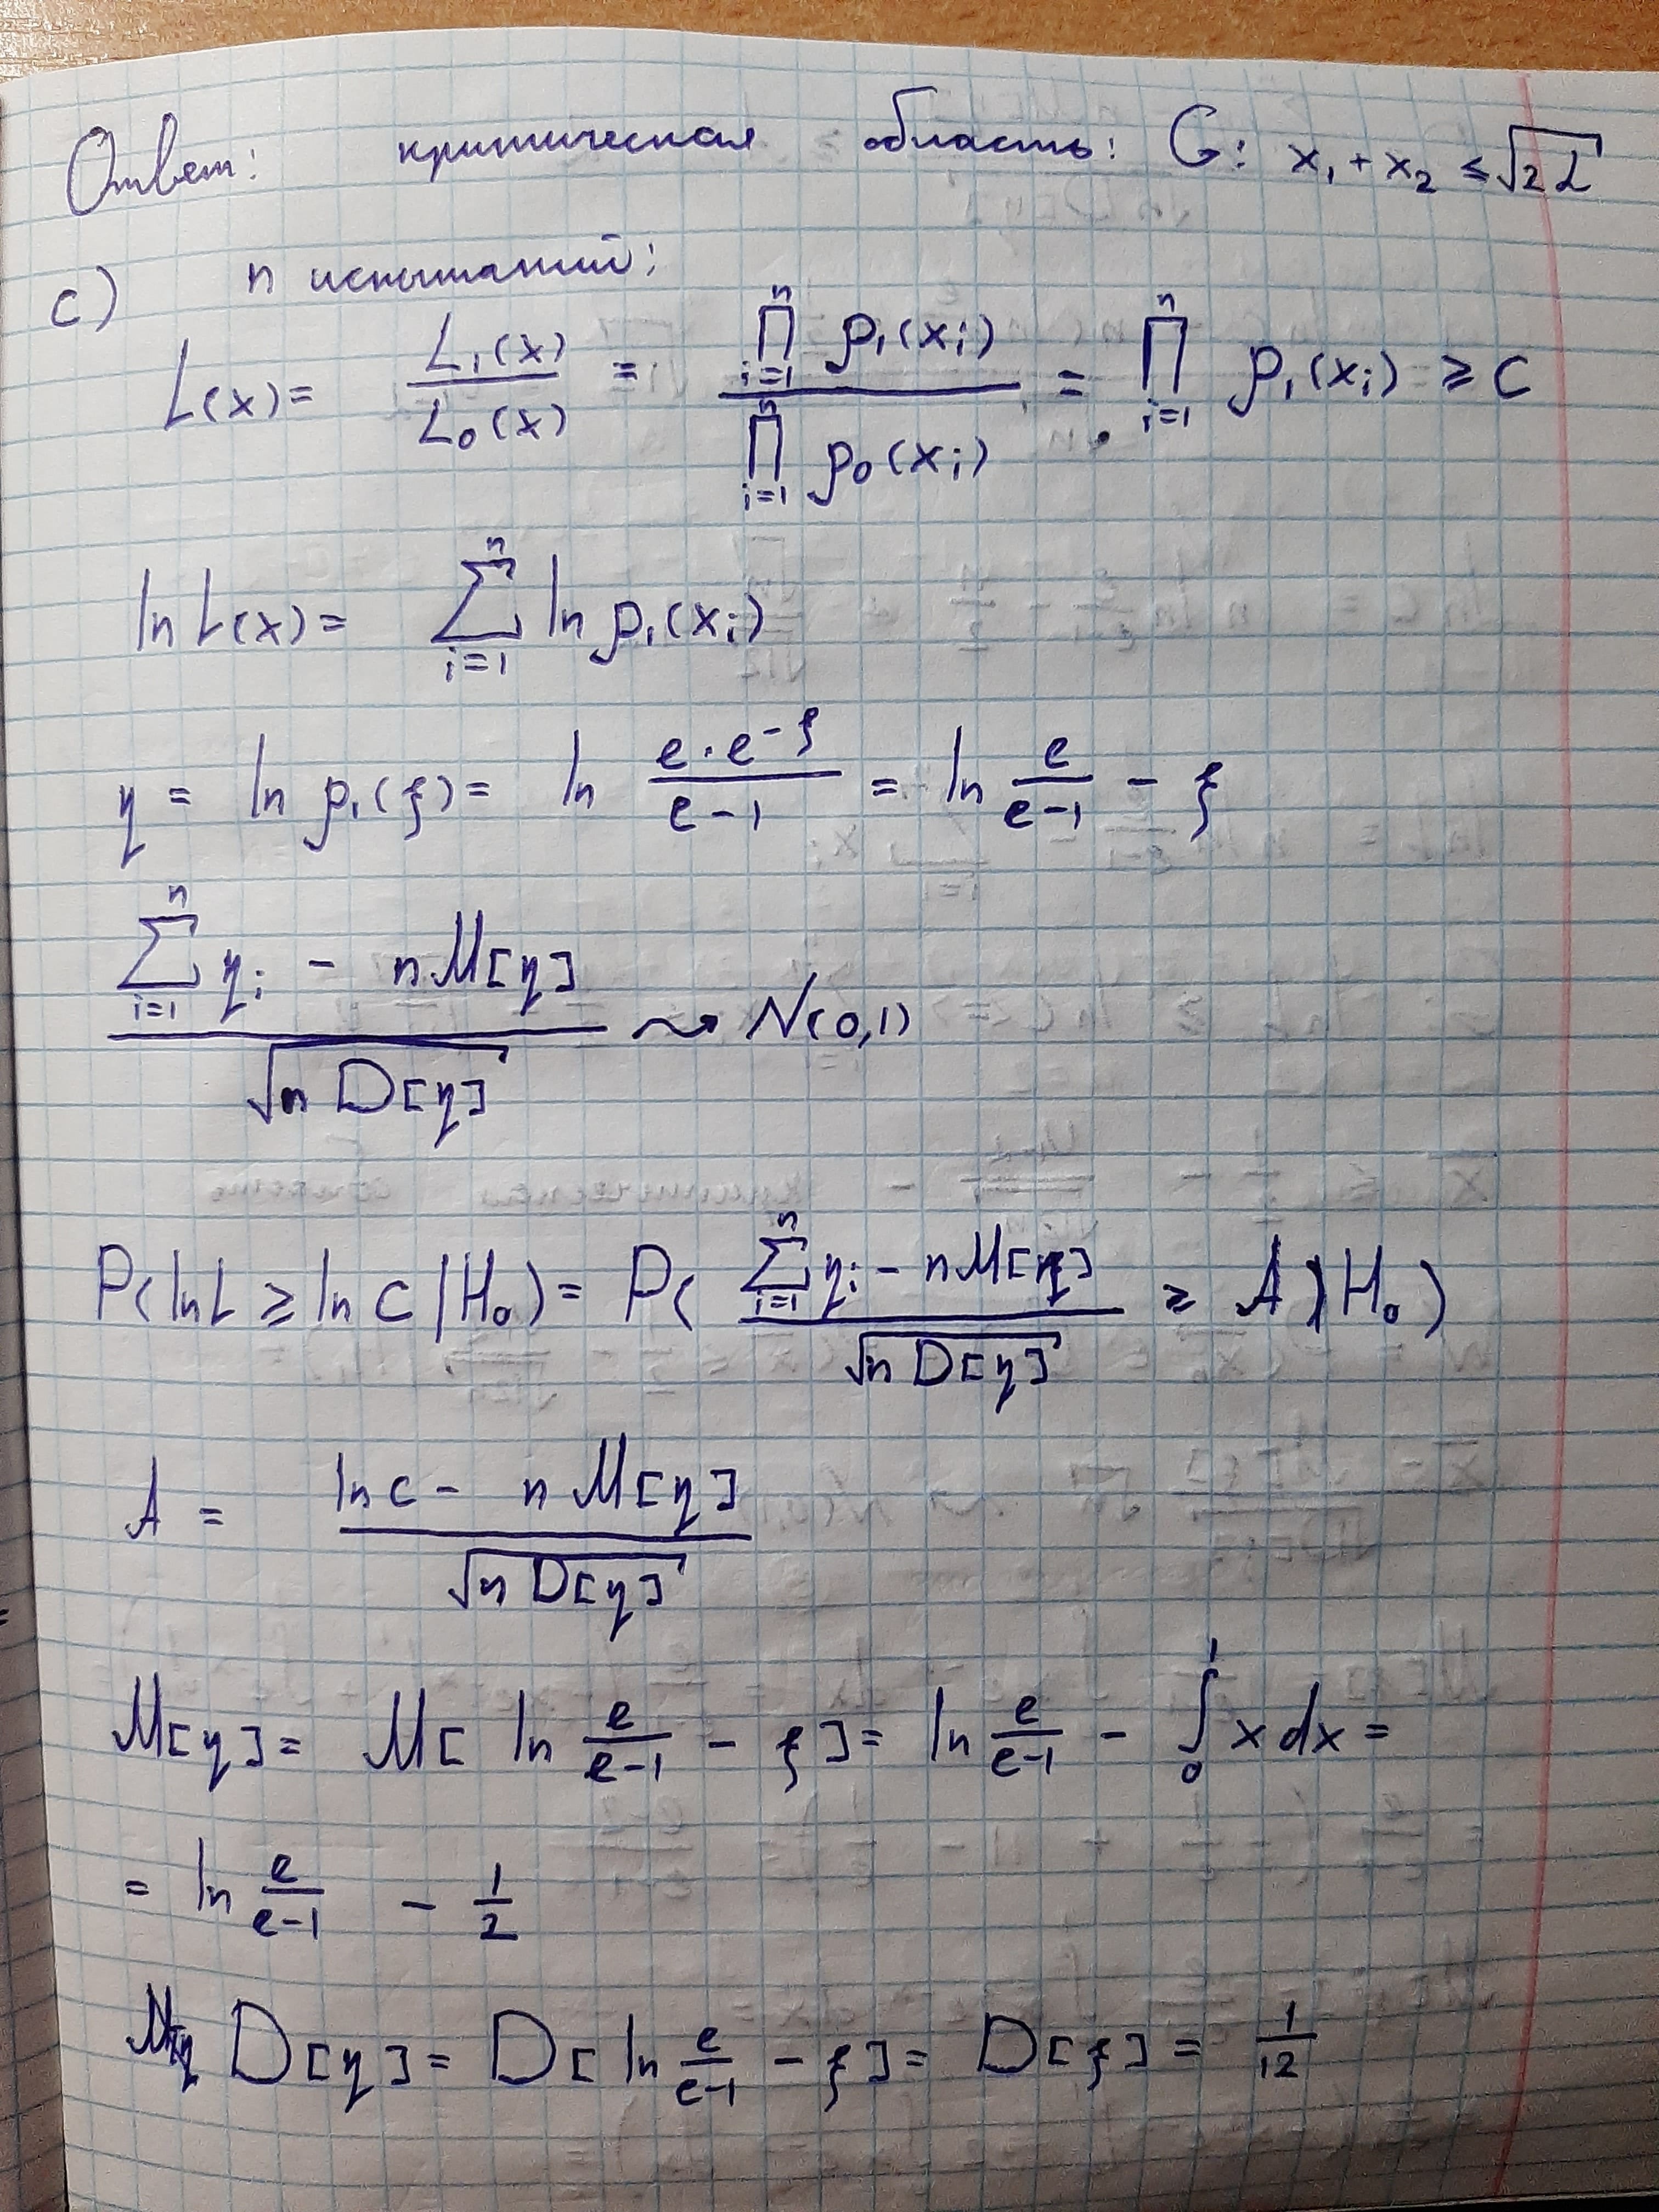 Ответ: критическая область: G: x₁ + x₂ ≤ √(2α)
c) n испытаний:
L(x) = L₁(x) / L₀(x) = ∏ᵢ₌₁ⁿ p₁(xᵢ) / ∏ᵢ₌₁ⁿ p₀(xᵢ) = ∏ᵢ₌₁ⁿ p₁(xᵢ) ≥ C
ln L(x) = ∑ᵢ₌₁ⁿ ln p₁(xᵢ)
η = ln p₁(ξ) = ln (e · e^(-ξ)) / (e-1) = ln e/(e-1) - ξ
(∑ᵢ₌₁ⁿ ηᵢ - n M[η]) / √(n D[η]) ⇝ N(0,1)
P(ln L ≥ ln C | H₀) = P( (∑ᵢ₌₁ⁿ ηᵢ - n M[η]) / √(n D[η]) ≥ A | H₀ )
A = (ln C - n M[η]) / √(n D[η])
M[η] = M[ ln e/(e-1) - ξ ] = ln e/(e-1) - ∫₀¹ x dx =
= ln e/(e-1) - 1/2
D[η] = D[ ln e/(e-1) - ξ ] = D[ξ] = 1/12